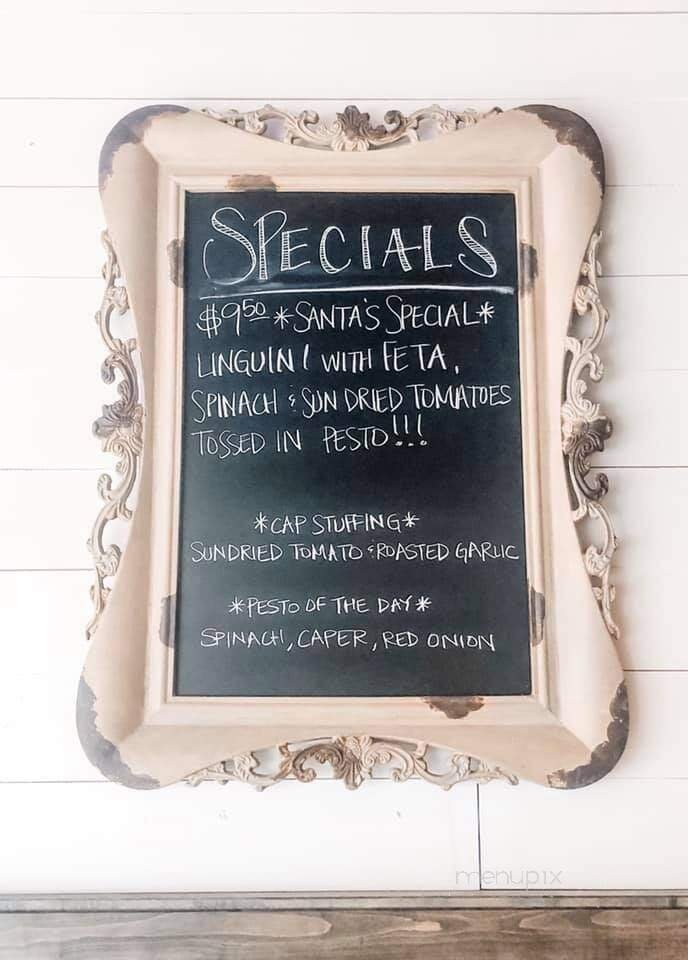 SPECIALS
$9.50 *SANTA'S SPECIAL*
LINGUINI WITH FETA,
SPINACH & SUN DRIED TOMATOES
TOSSED IN PESTO!!!
*CAP STUFFING*
SUNDRIED TOMATO & ROASTED GARLIC
*PESTO OF THE DAY*
SPINACH, CAPER, RED ONION
menupix